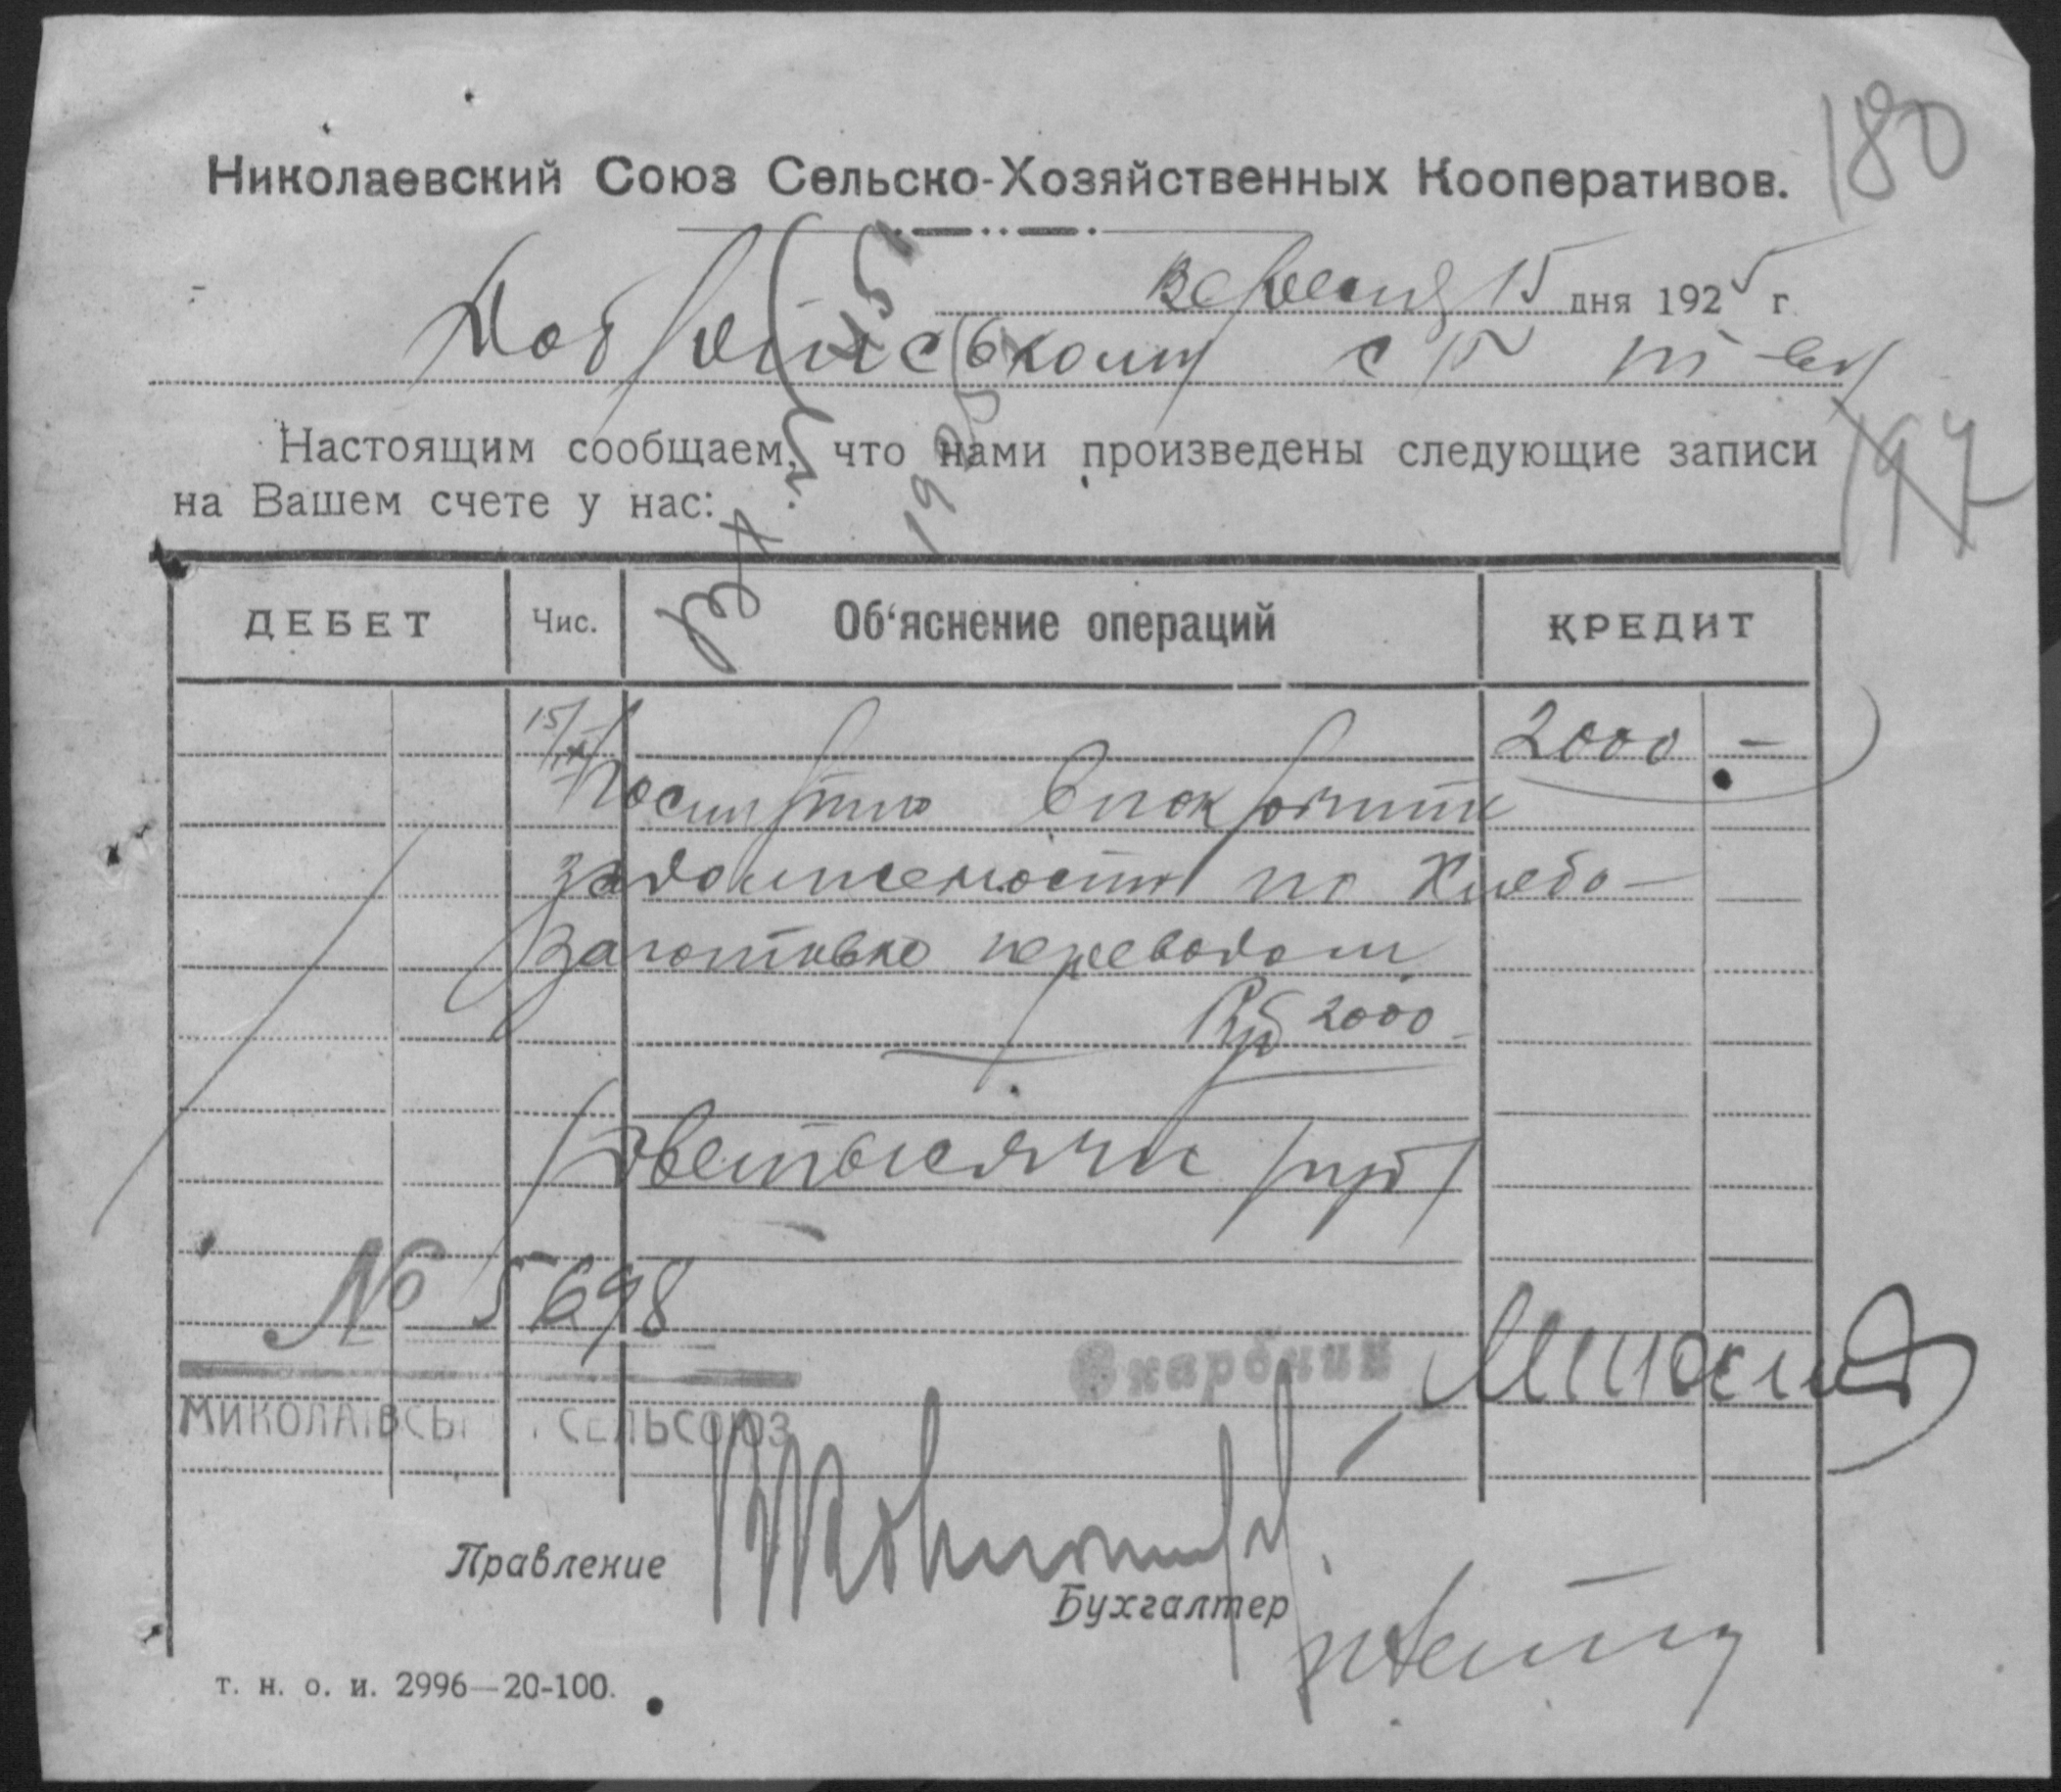 180
Николаевский Союз Сельско-Хозяйственных Кооперативов.
Вересня 15 дня 1925 г
Добренському с г т-ву
197
Настоящим сообщаем, что нами произведены следующие записи
на Вашем счете у нас:
ДЕБЕТ Чис. Об‘яснение операций КРЕДИТ
15/IX 2000 -
задолженности по Хлебо-
заготовке переводом
Руб 2000
/две тысячи руб/
№ 5698
Скарбник
МИКОЛАІВСЬ СЕЛЬСОЮЗ
Правление
Бухгалтер
т. н. о. и. 2996—20-100.